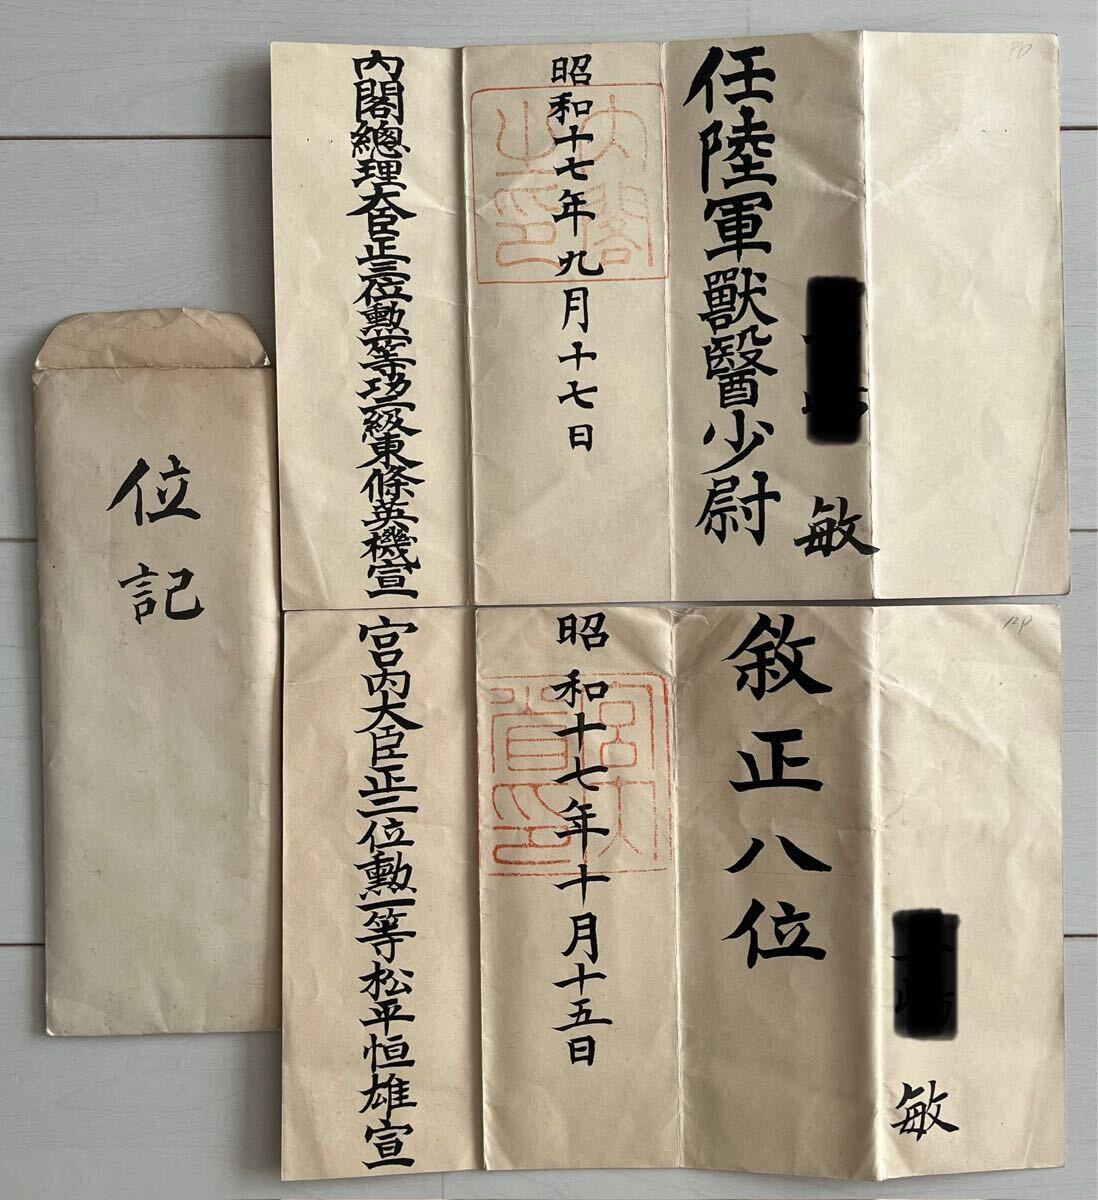 敏
任陸軍獸醫少尉
昭和十七年九月十七日
内閣之印
内閣總理大臣正三位勲一等功二級東條英機宣
敏
敘正八位
昭和十七年十月十五日
宮内大臣正二位勲一等松平恒雄宣
位記